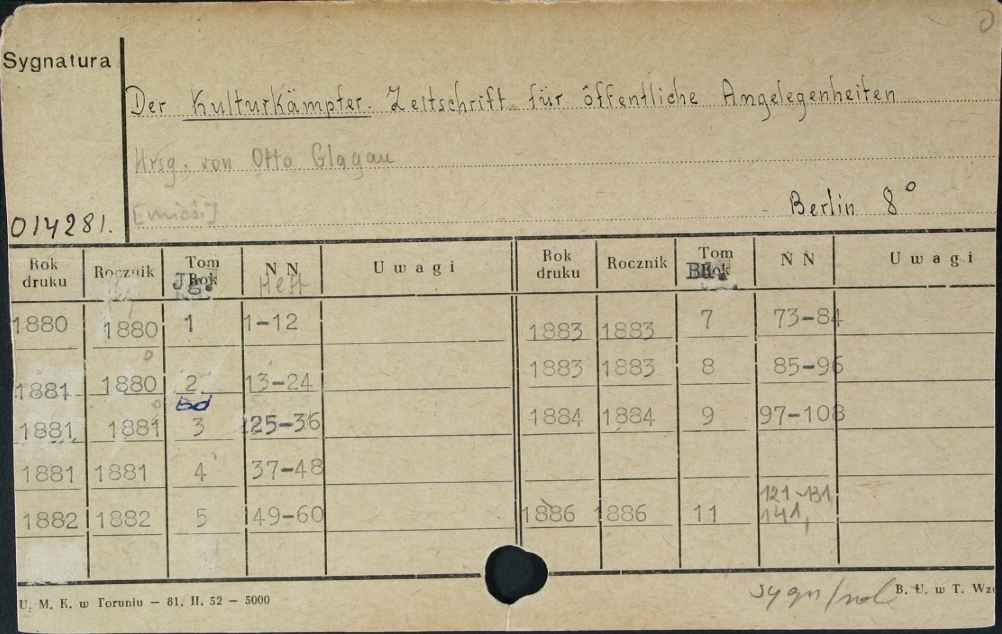 Sygnatura
Der Kulturkämpfer. Zeitschrift für öffentliche Angelegenheiten
Hrsg. von Otto Glagau
014281.
Berlin 8°
Rok druku Rocznik Tom Jg. N N Heft Uwagi Rok druku Rocznik Tom Bd. N N Uwagi
1880 1880 1 1-12 1883 1883 7 73-84
1881 1880 2 13-24 1883 1883 8 85-96
Bd
1881 1881 3 25-36 1884 1884 9 97-108
1881 1881 4 37-48
1882 1882 5 49-60 1886 1886 11 121-131
141,
U. M. K. w Toruniu — 81. II. 52 — 5000
B. U. w T.